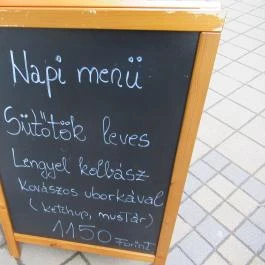 Napi menü
Sütőtök leves
Lengyel kolbász
Kovászos uborkával
( ketchup, mustár)
1150 Forint